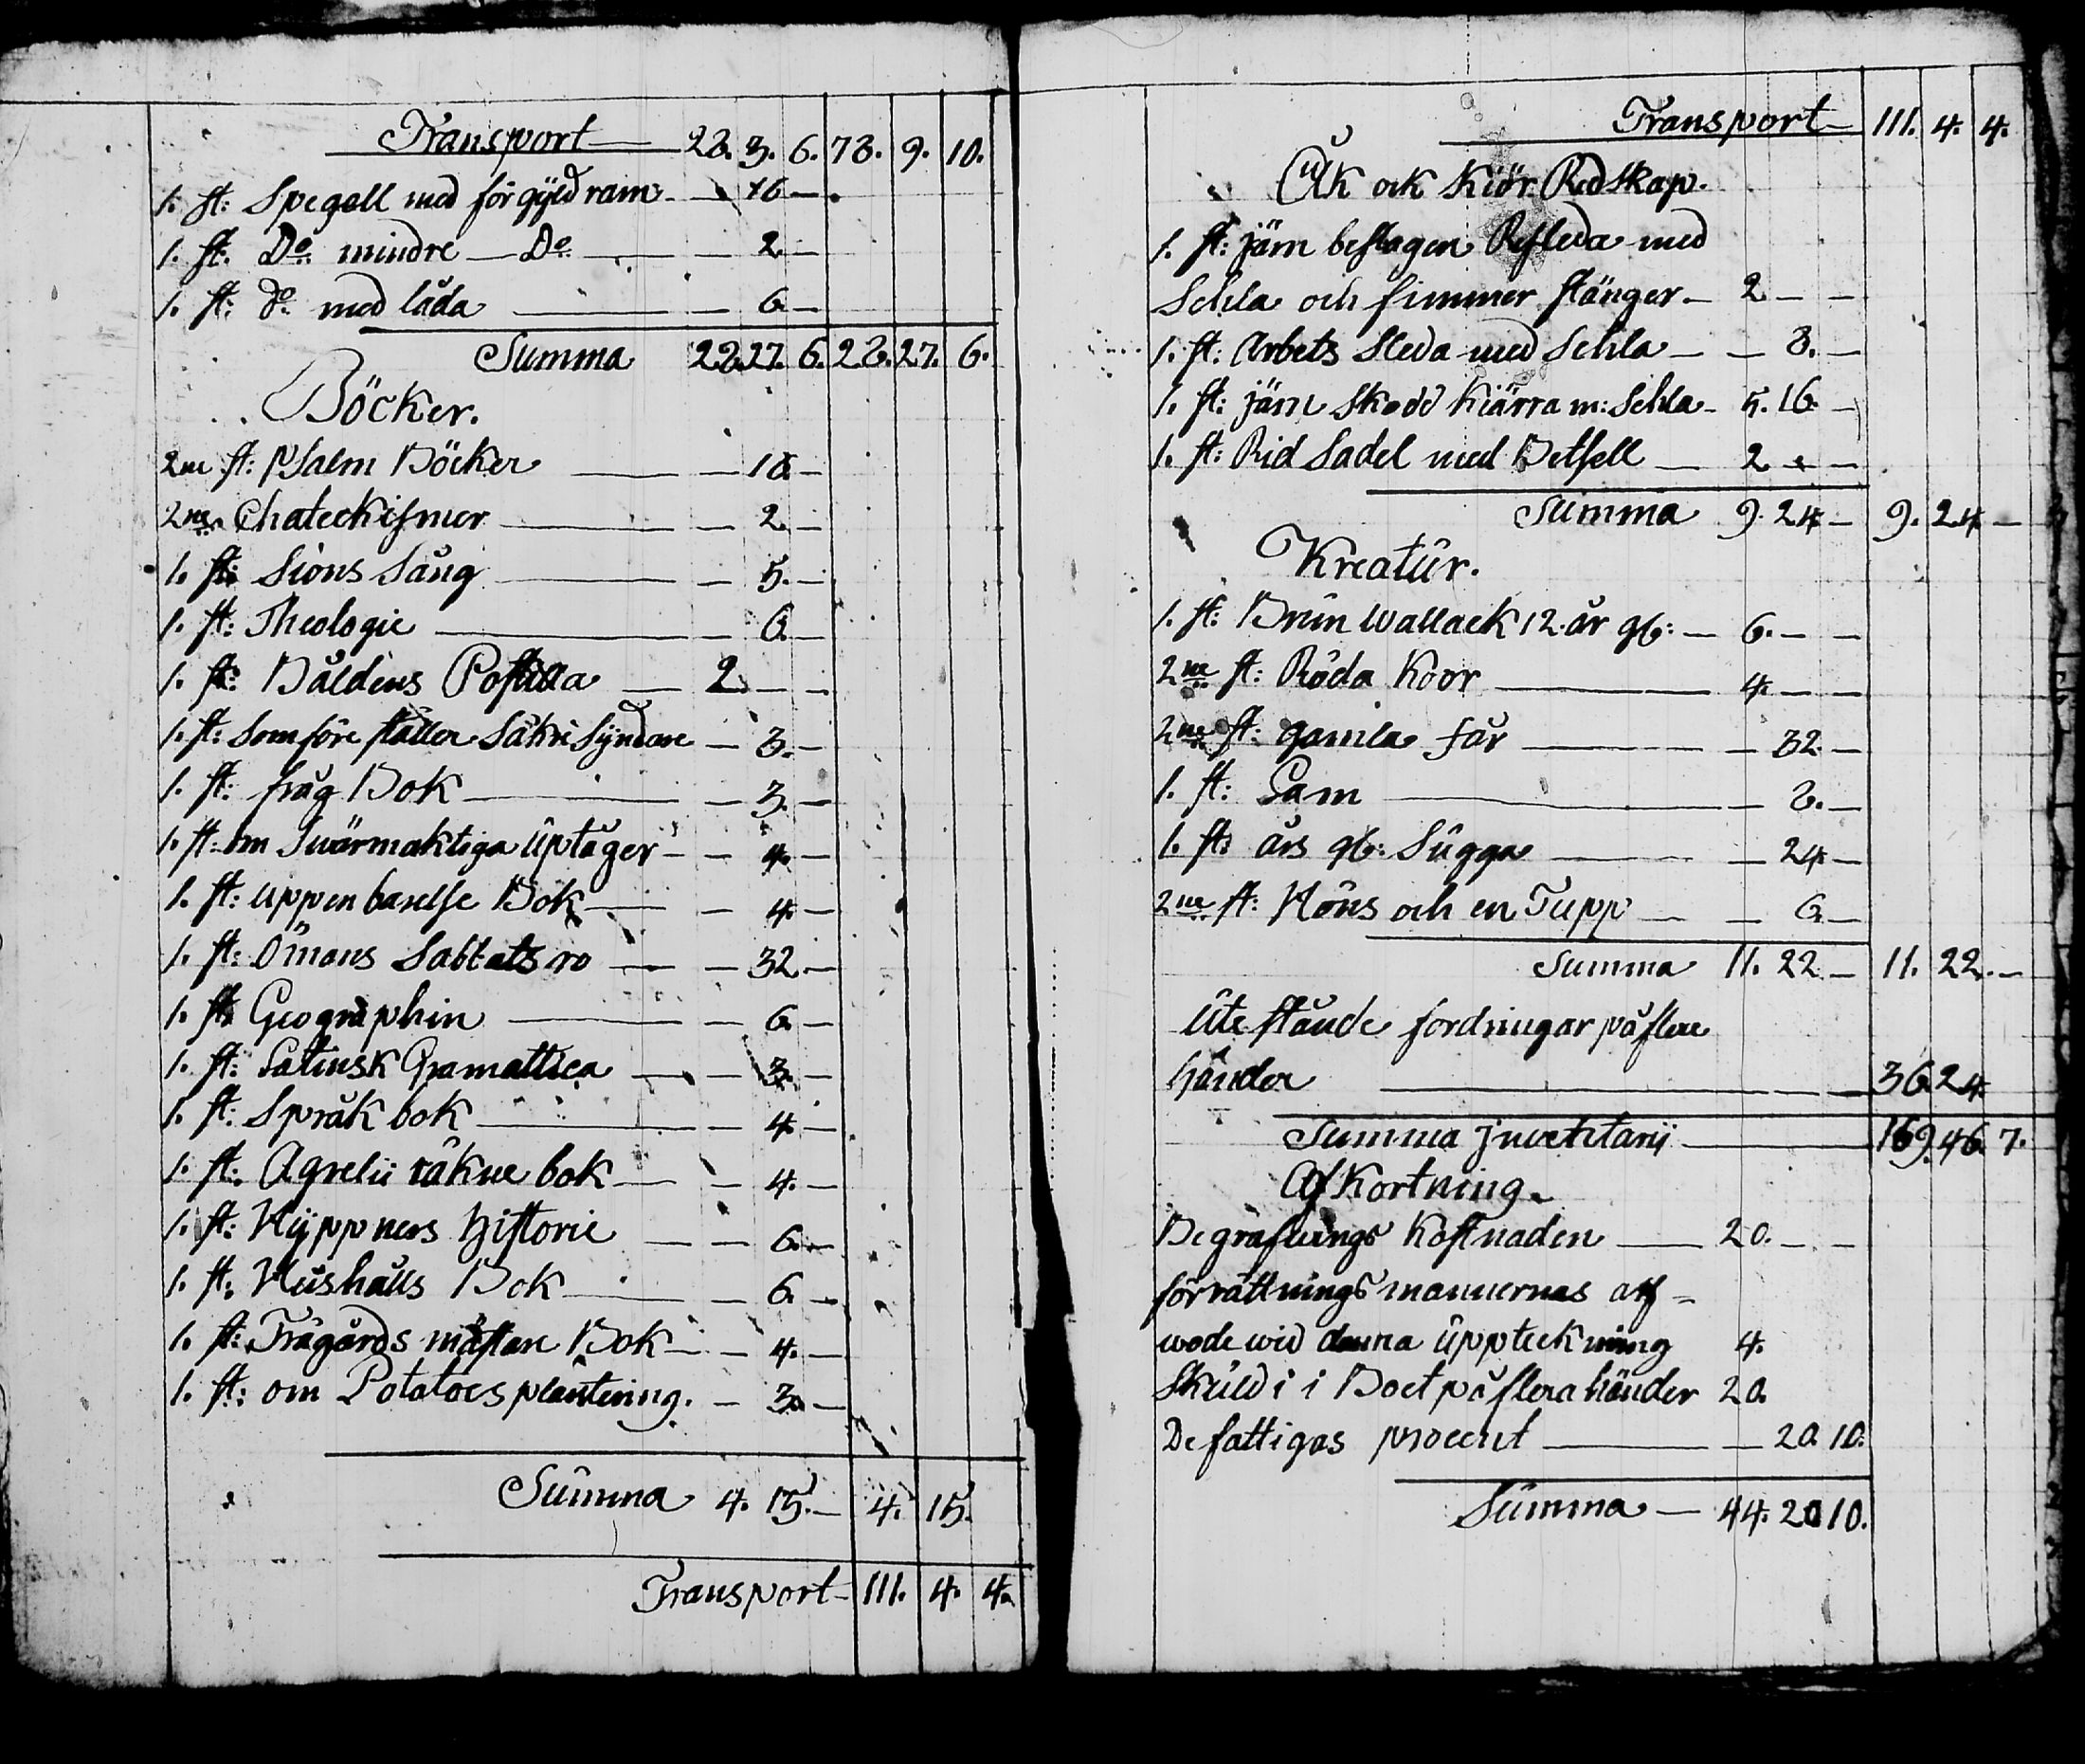 Transport — 28. 3. 6. 78. 9. 10.
1. st: Spegell med förgyld ram — 16 —
1. st. Do mindre — Do — 2 —
1. st: do med låda — 6 —
Summa 28. 27. 6. 28. 27. 6.
Böcker.
2ne st: Psalm Böcker — 18 —
2ne Chateckismer — 2 —
1. st: Sions Sång — 5. —
1. st: Theologie — 6. —
1. st: Båldens Postilla — 2 — —
1. st: Som före ställer Säkre Syndare — 3. —
1. st: fråg Bok — 3. —
1. st: om Swärmaktiga Uptåger — 4. —
1. st: uppenbarelse Bok — 4. —
1. st: Ömans Sabbats ro — 32. —
1. st: Geographin — 6. —
1. st: Latinsk Gramattica — 3. —
1. st: Språk bok — 4. —
1. st: Agrelii räkne bok — 4. —
1. st: Hyppners Historie — 6. —
1. st: Hushålls Bok — 6. —
1. st: Trägårds mästare Bok — 4. —
1. st: om Potatoes plantering. — 3. —
Summa 4. 15. — 4. 15.
Transport — 111. 4. 4.
Transport — 111. 4. 4.
Åk ock Kiör Redskap.
1. st: järn beslagen Resleda med
Sehla och fimmer stänger — 2 — —
1. st: Arbets Sleda med Sehla — 8. —
1. st: järn Skodd Kiärra m: Sehla — 5. 16 —
1. st: Rid Sadel med Betsell — 2 — —
Summa 9. 24 — 9. 24 —
Kreatur.
1. st: Brun Wallack 12. år gl: — 6. — —
2ne st: Röda Koor — 4. — —
2ne st: gamla får — 32 —
1. st: Lam — 8. —
1. st: års gl: Sugga — 24 —
2ne st: Höns och en Tupp — 6 —
Summa 11. 22 — 11. 22. —
Ute stående fordringar på flere
händer — 36. 24.
Summa jnventarii — 169. 46. 7.
Afkortning.
Begrafnings Kostnaden — 20. — —
förrättnings mannernas arf-
wode wid denna uppteckning 4.
Skuld i i Boet på flera händer 20.
De fattigas procent — 20. 10.
Summa — 44. 20 10.